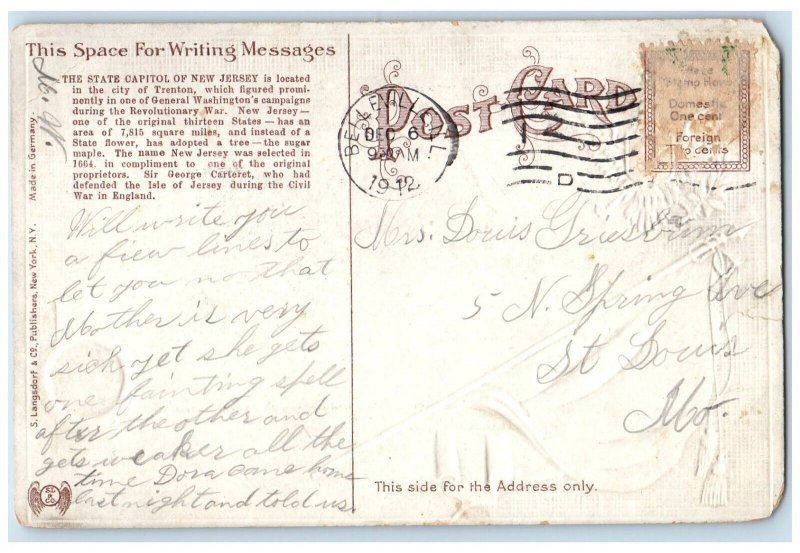 This Space For Writing Messages
THE STATE CAPITOL OF NEW JERSEY is located
in the city of Trenton, which figured promi-
nently in one of General Washington's campaigns
during the Revolutionary War. New Jersey—
one of the original thirteen States — has an
area of 7,815 square miles, and instead of a
State flower, has adopted a tree — the sugar
maple. The name New Jersey was selected in
1664 in compliment to one of the original
proprietors. Sir George Carteret, who had
defended the Isle of Jersey during the Civil
War in England.
Will write you
a fiew lines to
let you no that
Mother is very
sick yet she gets
one fainting spell
after the other and
gets weaker all the
time Dora came home
last night and told us.
S. Langsdorf & Co., Publishers, New York, N.Y. Made in Germany.
S.L.
& CO.
POST CARD
BELLEVILLE, ILL.
DEC 6
9 AM
1912
D
Place
Stamp Here
Domestic
One cent
Foreign
Two cents
Mrs. Louis
5 N. Spring Ave
St Louis
Mo.
This side for the Address only.